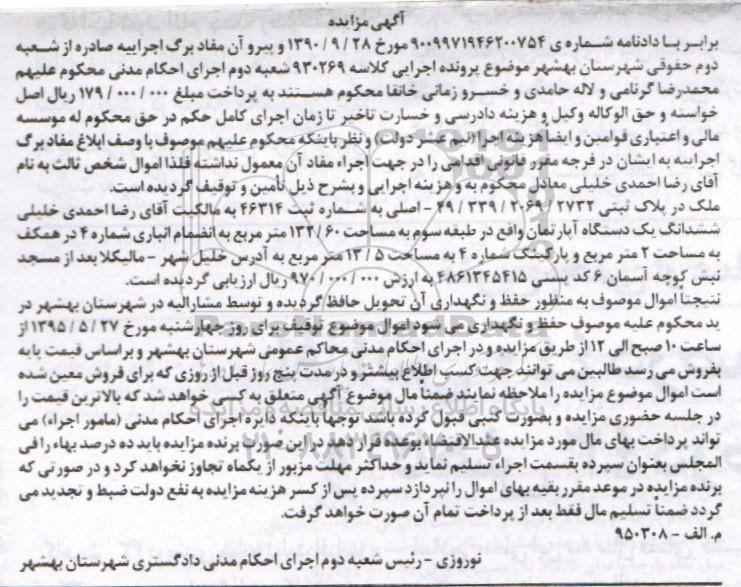 آگهی مزایده
برابر با دادنامه شماره ی ۹۰۰۹۹۷۱۹۴۶۲۰۰۷۵۴ مورخ ۲۸ / ۹ / ۱۳۹۰ و پیرو آن مفاد برگ اجراییه صادره از شعبه
دوم حقوقی شهرستان بهشهر موضوع پرونده اجرایی کلاسه ۹۳۰۲۶۹ شعبه دوم اجرای احکام مدنی محکوم علیهم
محمدرضا گرنامی و لاله حامدی و خسرو زمانی خانقا محکوم هستند به پرداخت مبلغ ۰۰۰ / ۰۰۰ / ۱۷۹ ریال اصل
خواسته و حق الوکاله وکیل و هزینه دادرسی و خسارت تاخیر تا زمان اجرای کامل حکم در حق محکوم له موسسه
مالی و اعتباری قوامین و ایضا هزینه اجرا (نیم عشر دولت) و نظر باینکه محکوم علیهم موصوف با وصف ابلاغ مفاد برگ
اجراییه به ایشان در فرجه مقرر قانونی اقدامی را در جهت اجراء مفاد آن معمول نداشته فلذا اموال شخص ثالث به نام
آقای رضا احمدی خلیلی معادل محکوم به و هزینه اجرایی و بشرح ذیل تأمین و توقیف گردیده است.
ملک در پلاک ثبتی ۲۷۳۲ / ۲۰۶۹ / ۳۳۹ / ۴۹ - اصلی به شماره ثبت ۴۶۳۱۴ به مالکیت آقای رضا احمدی خلیلی
ششدانگ یک دستگاه آپارتمان واقع در طبقه سوم به مساحت ۶۰ / ۱۳۲ متر مربع به انضمام انباری شماره ۴ در همکف
به مساحت ۲ متر مربع و پارکینگ شماره ۴ به مساحت ۵ / ۱۳ متر مربع به آدرس خلیل شهر - مالیکلا بعد از مسجد
نبش کوچه آسمان ۶ کد پستی ۴۸۶۱۳۴۵۴۱۵ به ارزش ۰۰۰ / ۰۰۰ / ۹۷۰ ریال ارزیابی گردیده است.
نتیجتا اموال موصوف به منظور حفظ و نگهداری آن تحویل حافظ گردیده و توسط مشارالیه در شهرستان بهشهر در
ید محکوم علیه موصوف حفظ و نگهداری می شود اموال موضوع توقیف برای روز چهارشنبه مورخ ۲۷ / ۵ / ۱۳۹۵ از
ساعت ۱۰ صبح الی ۱۲ از طریق مزایده و در اجرای احکام مدنی محاکم عمومی شهرستان بهشهر و براساس قیمت پایه
بفروش می رسد طالبین می توانند جهت کسب اطلاع بیشتر و در مدت پنج روز قبل از روزی که برای فروش معین شده
است اموال موضوع مزایده را ملاحظه نمایند ضمناً مال موضوع آگهی متعلق به کسی خواهد شد که بالاترین قیمت را
در جلسه حضوری مزایده و بصورت کتبی قبول کرده باشد توجها باینکه دایره اجرای احکام مدنی (مامور اجراء) می
تواند پرداخت بهای مال مورد مزایده عندالاقتضاء بوعده قرار دهد در این صورت برنده مزایده باید ده درصد بهاء را فی
المجلس بعنوان سپرده بقسمت اجراء تسلیم نماید و حداکثر مهلت مزبور از یکماه تجاوز نخواهد کرد و در صورتی که
برنده مزایده در موعد مقرر بقیه بهای اموال را نپردازد سپرده پس از کسر هزینه مزایده به نفع دولت ضبط و تجدید می
گردد ضمناً تسلیم مال فقط بعد از پرداخت تمام آن صورت خواهد گرفت.
م. الف - ۹۵۰۳۰۸
نوروزی - رئیس شعبه دوم اجرای احکام مدنی دادگستری شهرستان بهشهر